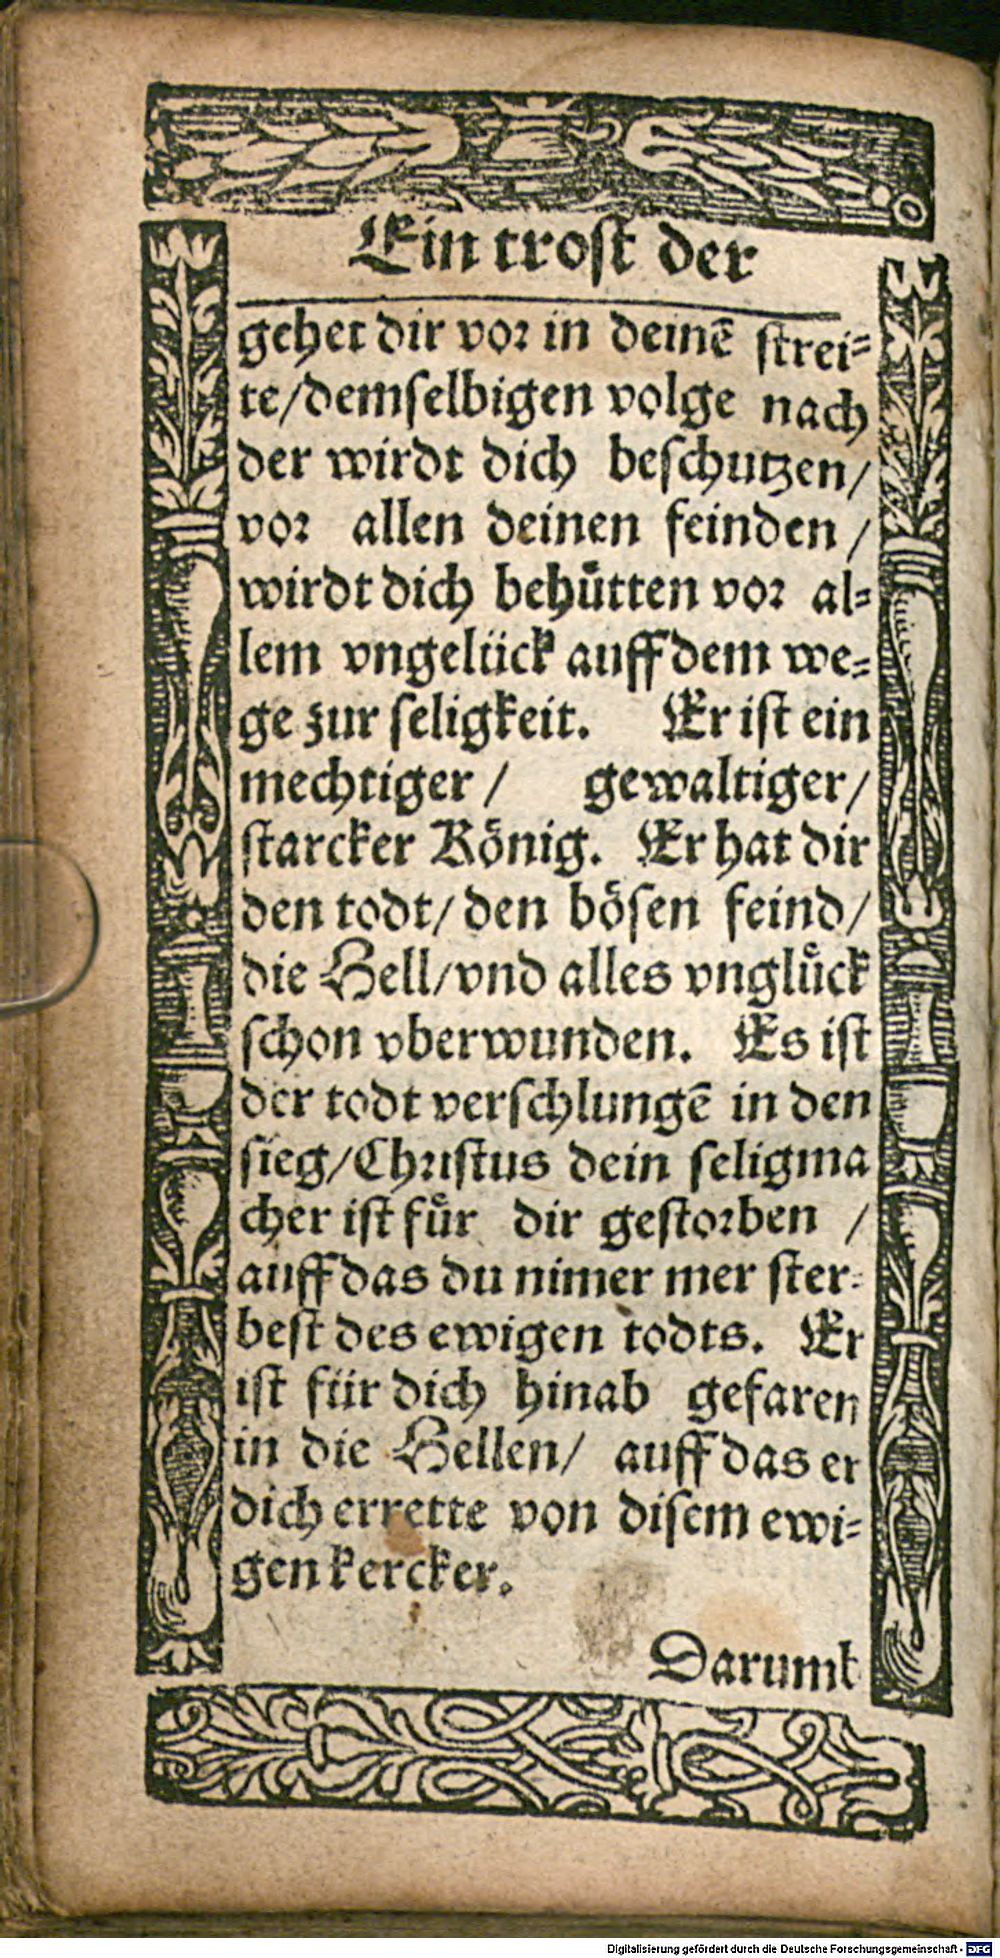 Ein trost der
gehet dir vor in deinē strei⸗
te/demselbigen volge nach
der wirdt dich beschutzen/
vor allen deinen feinden /
wirdt dich behuͤtten vor al⸗
lem vngelück auff dem we⸗
ge zur seligkeit. Er ist ein
mechtiger / gewaltiger/
starcker Koͤnig. Er hat dir
den todt/ den boͤsen feind/
die Hell/vnd alles vngluͤck
schon vberwunden. Es ist
der todt verschlungē in den
sieg/Christus dein seligma
cher ist fuͤr dir gestorben /
auff das du nimer mer ster⸗
best des ewigen todts. Er
ist für dich hinab gefaren
in die Hellen/ auff das er
dich errette von disem ewi⸗
gen kercker.
Darumb
Digitalisierung gefördert durch die Deutsche Forschungsgemeinschaft - DFG